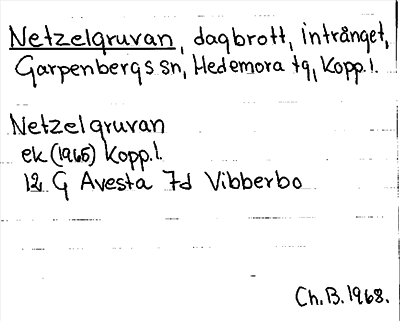 Netzelgruvan, dagbrott, intrånget,
Garpenbergs sn, Hedemora tg, Kopp.l.
Netzelgruvan
ek (1965) Kopp.l.
12 G Avesta 7d Vibberbo
Ch.B.1968.